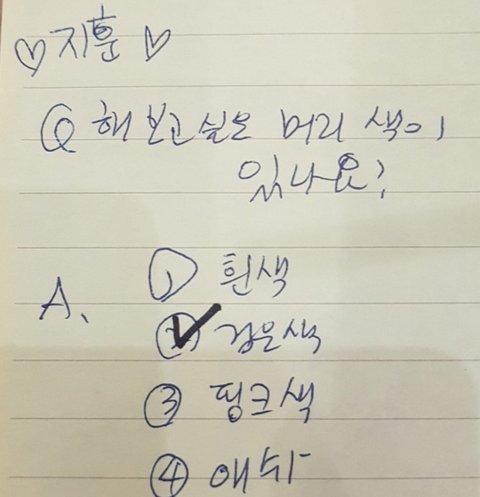 ♡ 지훈 ♡
Q 해보고싶은 머리 색이
있나요?
A. ① 흰색
② 검은색
③ 핑크색
④ 애쉬